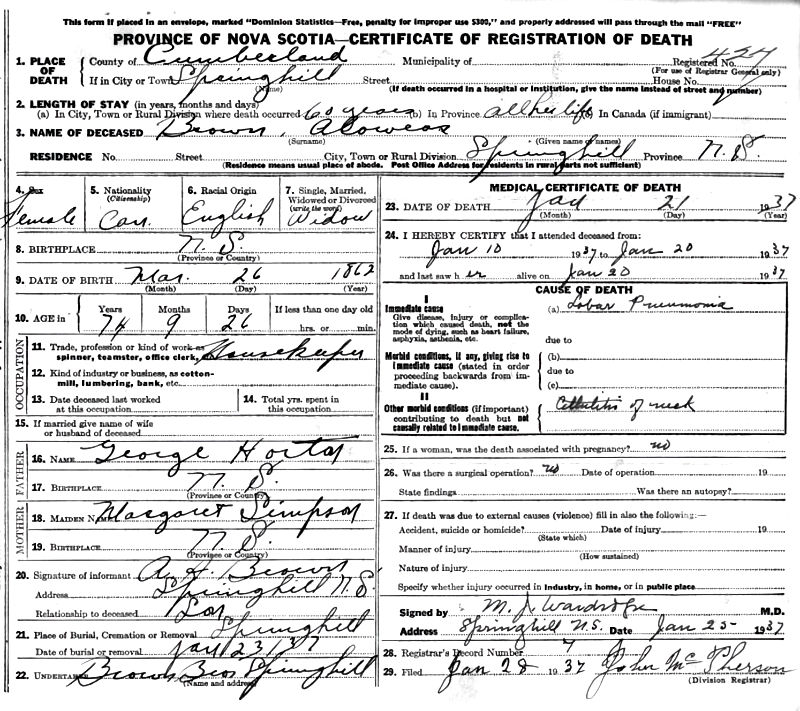 This form if placed in an envelope, marked "Dominion Statistics—Free, penalty for improper use $300," and properly addressed will pass through the mail "FREE"
PROVINCE OF NOVA SCOTIA—CERTIFICATE OF REGISTRATION OF DEATH
1. PLACE OF DEATH County of Cumberland Municipality of Registered No. 427
(For use of Registrar General only)
If in City or Town Springhill Street House No.
(Name) (If death occurred in a hospital or institution, give the name instead of street and number)
2. LENGTH OF STAY (in years, months and days)
(a) In City, Town or Rural Division where death occurred 60 years (b) In Province all her life (c) In Canada (if immigrant)
3. NAME OF DECEASED Brown,
(Surname) (Given name or names)
RESIDENCE No. Street City, Town or Rural Division Springhill Province N.S.
(Residence means usual place of abode. Post Office Address for residents in rural parts not sufficient)
4. Sex Female
5. Nationality (Citizenship) Can.
6. Racial Origin English
7. Single, Married, Widowed or Divorced (write the word) Widow
8. BIRTHPLACE N.S.
(Province or Country)
9. DATE OF BIRTH Mar. 26 1862
(Month) (Day) (Year)
10. AGE in Years Months Days If less than one day old
74 9 26 hrs. or min.
OCCUPATION
11. Trade, profession or kind of work as spinner, teamster, office clerk, Housekeeper
12. Kind of industry or business, as cotton-mill, lumbering, bank, etc.
13. Date deceased last worked at this occupation
14. Total yrs. spent in this occupation
15. If married give name of wife or husband of deceased
FATHER
16. NAME George
17. BIRTHPLACE N.S.
(Province or Country)
MOTHER
18. MAIDEN NAME Margaret Simpson
19. BIRTHPLACE N.S.
(Province or Country)
20. Signature of informant Brown
Address Springhill N.S.
Relationship to deceased Son
21. Place of Burial, Cremation or Removal Springhill
Date of burial or removal Jan 23/37
22. UNDERTAKER Brown Bros Springhill
(Name and address)
MEDICAL CERTIFICATE OF DEATH
23. DATE OF DEATH Jan 21 1937
(Month) (Day) (Year)
24. I HEREBY CERTIFY that I attended deceased from:
Jan 10 1937 to Jan 20 1937
and last saw her alive on Jan 20 1937
CAUSE OF DEATH
I
Immediate cause (a) Lobar Pneumonia
Give disease, injury or complication which caused death, not the mode of dying, such as heart failure, asphyxia, asthenia, etc.
due to
Morbid conditions, if any, giving rise to immediate cause (stated in order proceeding backwards from immediate cause). (b)
due to
(c)
II
Other morbid conditions (if important) contributing to death but not causally related to immediate cause. Cellulitis of neck
25. If a woman, was the death associated with pregnancy? no
26. Was there a surgical operation? no Date of operation 19
State findings Was there an autopsy?
27. If death was due to external causes (violence) fill in also the following:—
Accident, suicide or homicide? Date of injury 19
(State which)
Manner of injury
(How sustained)
Nature of injury
Specify whether injury occurred in industry, in home, or in public place
Signed by M. J. Wardrope M.D.
Address Springhill N.S. Date Jan 25- 1937
28. Registrar's Record Number 7
29. Filed Jan 28 1937 John McPherson
(Division Registrar)